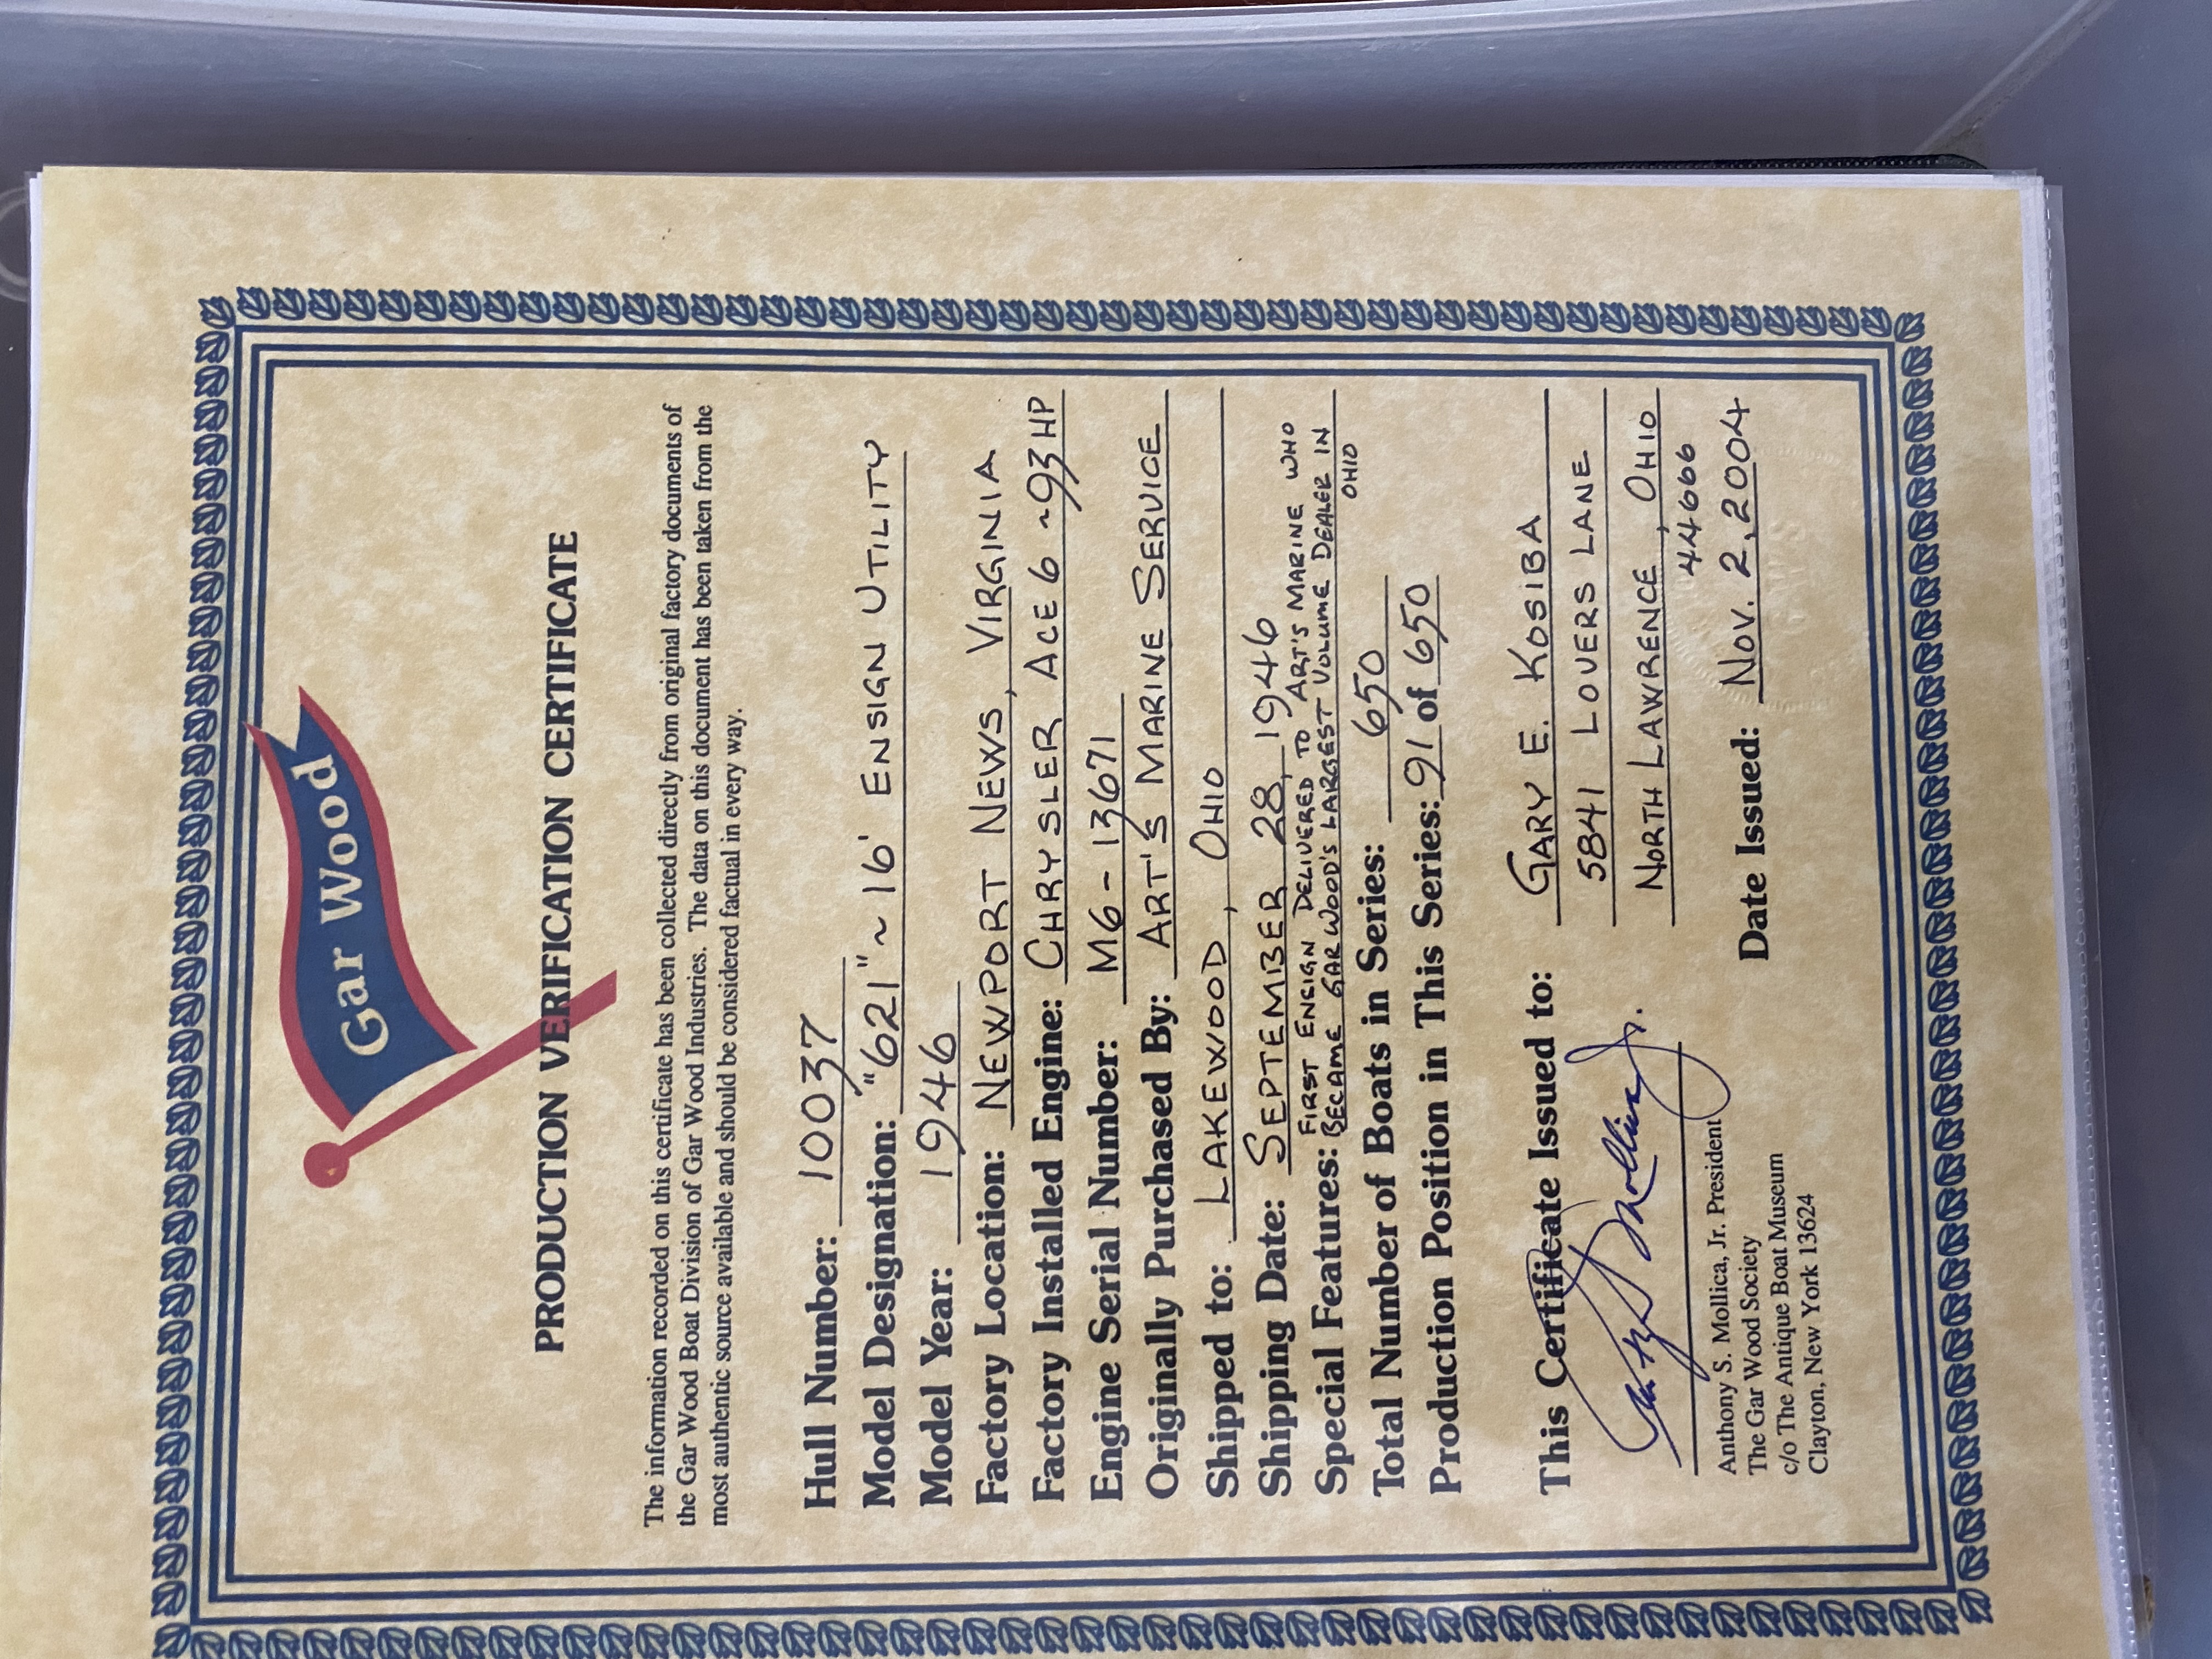 Gar Wood
PRODUCTION VERIFICATION CERTIFICATE
The information recorded on this certificate has been collected directly from original factory documents of
the Gar Wood Boat Division of Gar Wood Industries. The data on this document has been taken from the
most authentic source available and should be considered factual in every way.
Hull Number: 10037
Model Designation: "621" ~ 16' ENSIGN UTILITY
Model Year: 1946
Factory Location: NEWPORT NEWS, VIRGINIA
Factory Installed Engine: CHRYSLER ACE 6 ~93 HP
Engine Serial Number: M6-13671
Originally Purchased By: ART'S MARINE SERVICE
Shipped to: LAKEWOOD, OHIO
Shipping Date: SEPTEMBER 28, 1946
FIRST ENSIGN DELIVERED TO ART'S MARINE WHO
Special Features: BECAME GARWOOD'S LARGEST VOLUME DEALER IN
OHIO
Total Number of Boats in Series: 650
Production Position in This Series: 91 of 650
This Certificate Issued to: GARY E. KOSIBA
5841 LOVERS LANE
NORTH LAWRENCE, OHIO
44666
Anthony S. Mollica, Jr. President
The Gar Wood Society
c/o The Antique Boat Museum
Clayton, New York 13624
Date Issued: NOV. 2, 2004